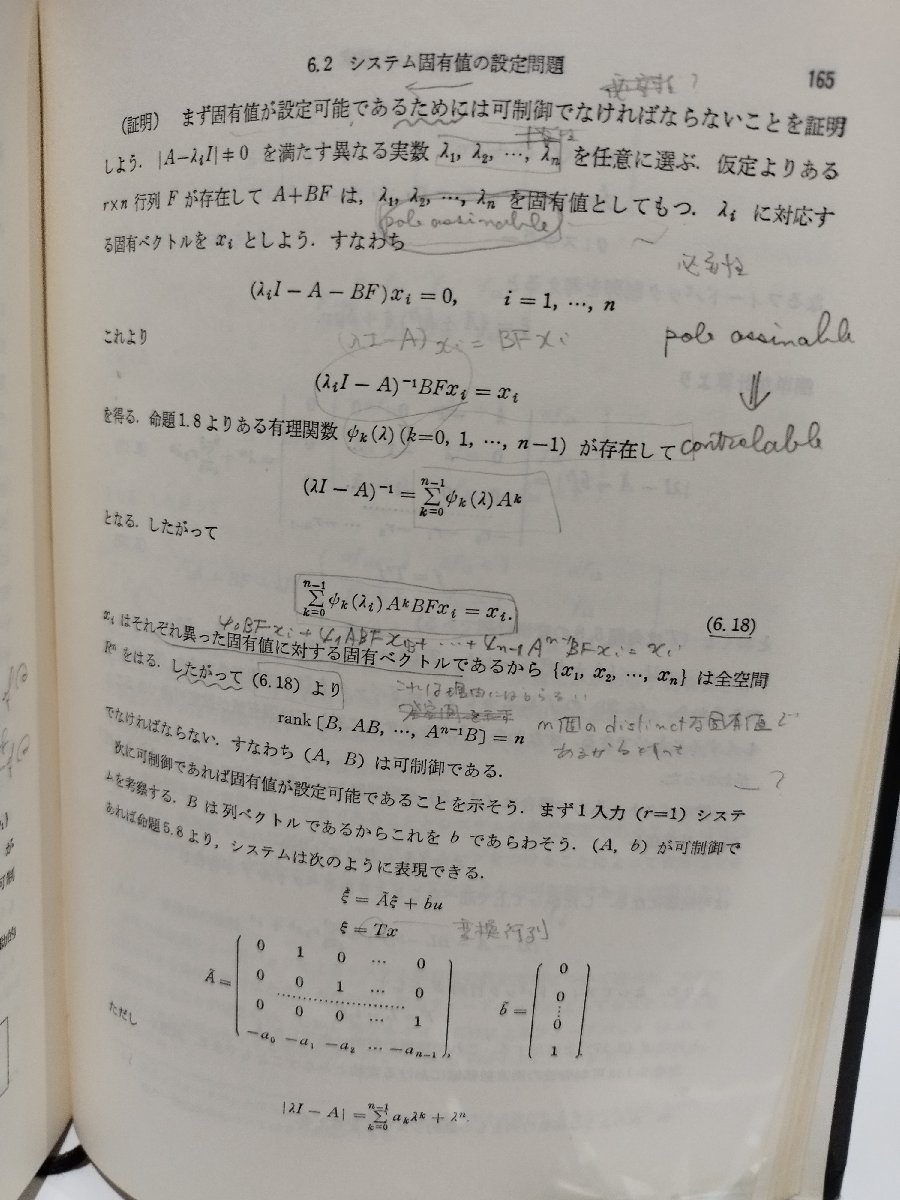 6.2 システム固有値の設定問題 165
(証明) まず固有値が設定可能であるためには可制御でなければならないことを証明
しよう. |A−λ_iI|≠0 を満たす異なる実数 λ₁, λ₂, …, λ_n を任意に選ぶ. 仮定よりある
r×n 行列 F が存在して A+BF は, λ₁, λ₂, …, λ_n を固有値としてもつ. λ_i に対応す
pole assinable
る固有ベクトルを x_i としよう. すなわち
必要性
(λ_iI−A−BF)x_i=0, i=1, …, n
これより
(λI−A)x_i = BFx_i
pole assinable
(λ_iI−A)⁻¹BFx_i=x_i
⇓
を得る. 命題1.8よりある有理関数 ψ_k(λ)(k=0, 1, …, n−1) が存在して
controlable
(λI−A)⁻¹=∑_{k=0}^{n−1}ψ_k(λ)A^k
となる. したがって
∑_{k=0}^{n−1}ψ_k(λ_i)A^kBFx_i=x_i. (6.18)
ψ₀BFx_i+ψ₁ABFx_i+…+ψ_{n−1}A^{n−1}BFx_i=x_i
x_i はそれぞれ異った固有値に対する固有ベクトルであるから {x₁, x₂, …, x_n} は全空間
R^n をはる. したがって (6.18) より
これは理由にはならない
rank[B, AB, …, A^{n−1}B]=n
n個のdistinctな固有値で
あるからといって
でなければならない. すなわち (A, B) は可制御である.
?
次に可制御であれば固有値が設定可能であることを示そう. まず1入力 (r=1) システ
ムを考察する. B は列ベクトルであるからこれを b であらわそう. (A, b) が可制御で
あれば命題5.8より, システムは次のように表現できる.
ξ̇=Ãξ+b̃u
ξ=Tx
変換行列
Ã= b̃=
0 1 0 … 0 0
0 0 1 … 0 0
………………… ⋮
0 0 0 … 1 0
−a₀ −a₁ −a₂ … −a_{n−1}, 1,
ただし
|λI−A|=∑_{k=0}^{n−1}a_kλ^k+λ^n.